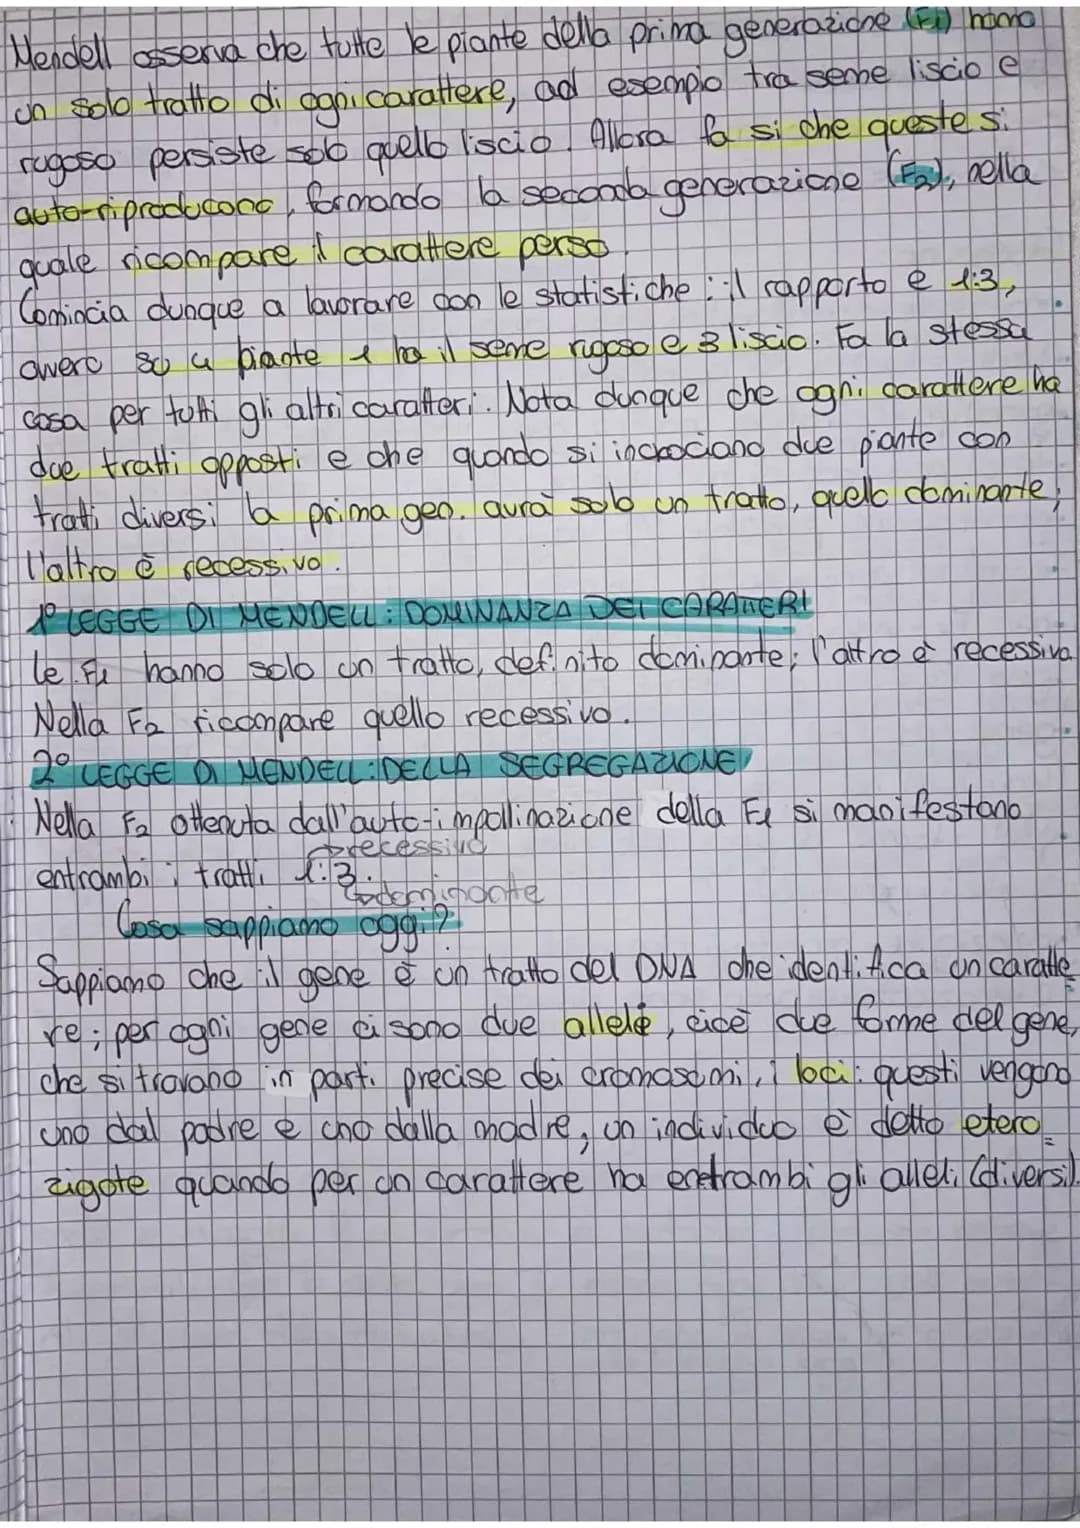 Mendell osserva che tutte le piante della prima generazione (F1) hanno
un solo tratto di ogni carattere, ad esempio tra seme liscio e
rugoso persiste solo quello liscio. Allora fa si che queste si
auto-riproducono, formando la seconda generazione (F2), nella
quale ricompare il carattere perso.
Comincia dunque a lavorare con le statistiche: il rapporto e 1:3,
ovvero su 4 piante 1 ha il seme rugoso e 3 liscio. Fa la stessa
cosa per tutti gli altri caratteri. Nota dunque che ogni carattere ha
due tratti opposti e che quando si incrociano due piante con
tratti diversi la prima gen. avrà solo un tratto, quello dominante;
l'altro è recessivo.
1° LEGGE DI MENDELL: DOMINANZA DEI CARATTERI
le F1 hanno solo un tratto, definito dominante; l'altro è recessivo
Nella F2 ricompare quello recessivo.
2° LEGGE DI MENDELL: DELLA SEGREGAZIONE
Nella F2 ottenuta dall'auto-impollinazione della F1 si manifestano
recessivo
entrambi i tratti 1:3.
dominante
Cosa sappiamo oggi?
Sappiamo che il gene è un tratto del DNA che identifica un caratte
re; per ogni gene ci sono due allele, cioè due forme del gene,
che si trovano in parti precise dei cromosomi, i loci: questi vengono
uno dal padre e uno dalla madre, un individuo è detto etero=
zigote quando per un carattere ha entrambi gli alleli (diversi).